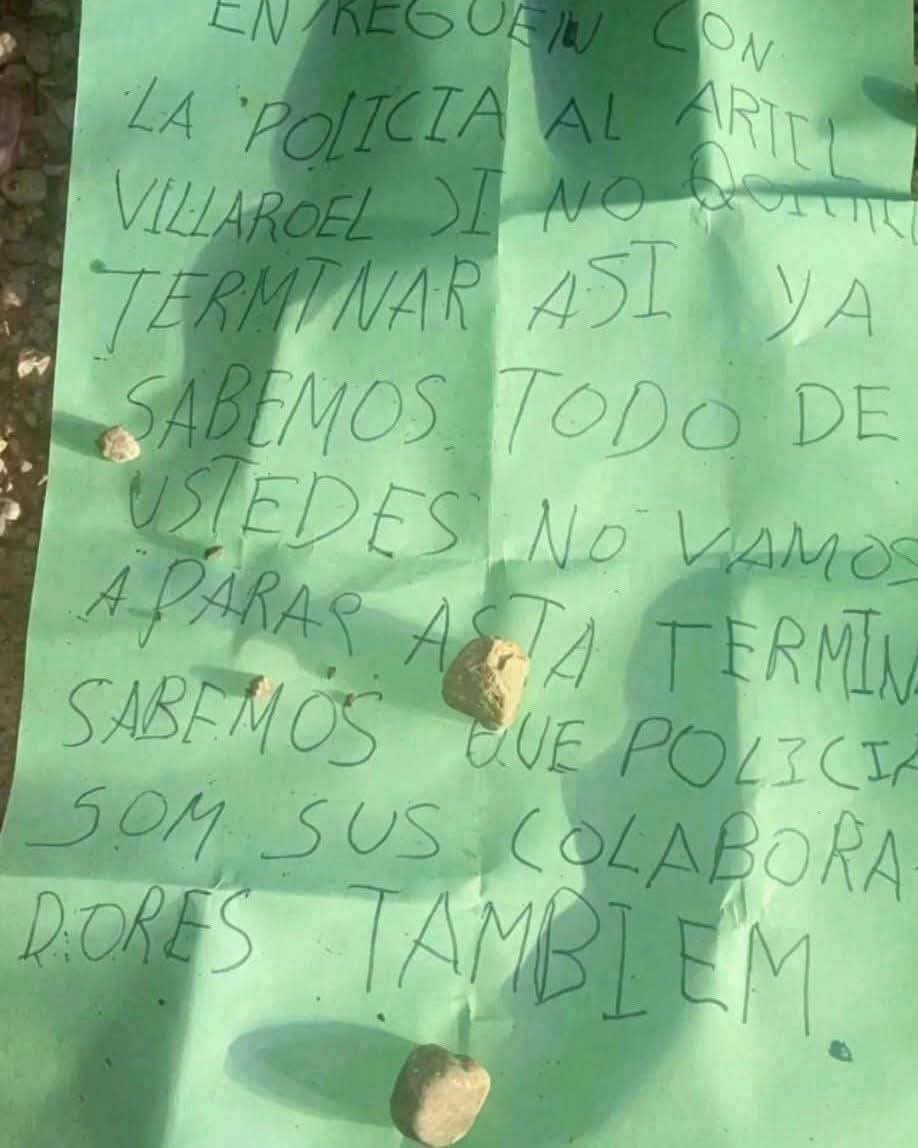 ENTREGUEIN CON
LA POLICIA AL ARTEL
VILLAROEL SI NO
TERMINAR ASI YA
SABEMOS TODO DE
USTEDES NO VAMOS
A PARAR ASTA TERMIN
SABEMOS QUE POLICIA
SOM SUS COLABORA
DORES TAMBIEM